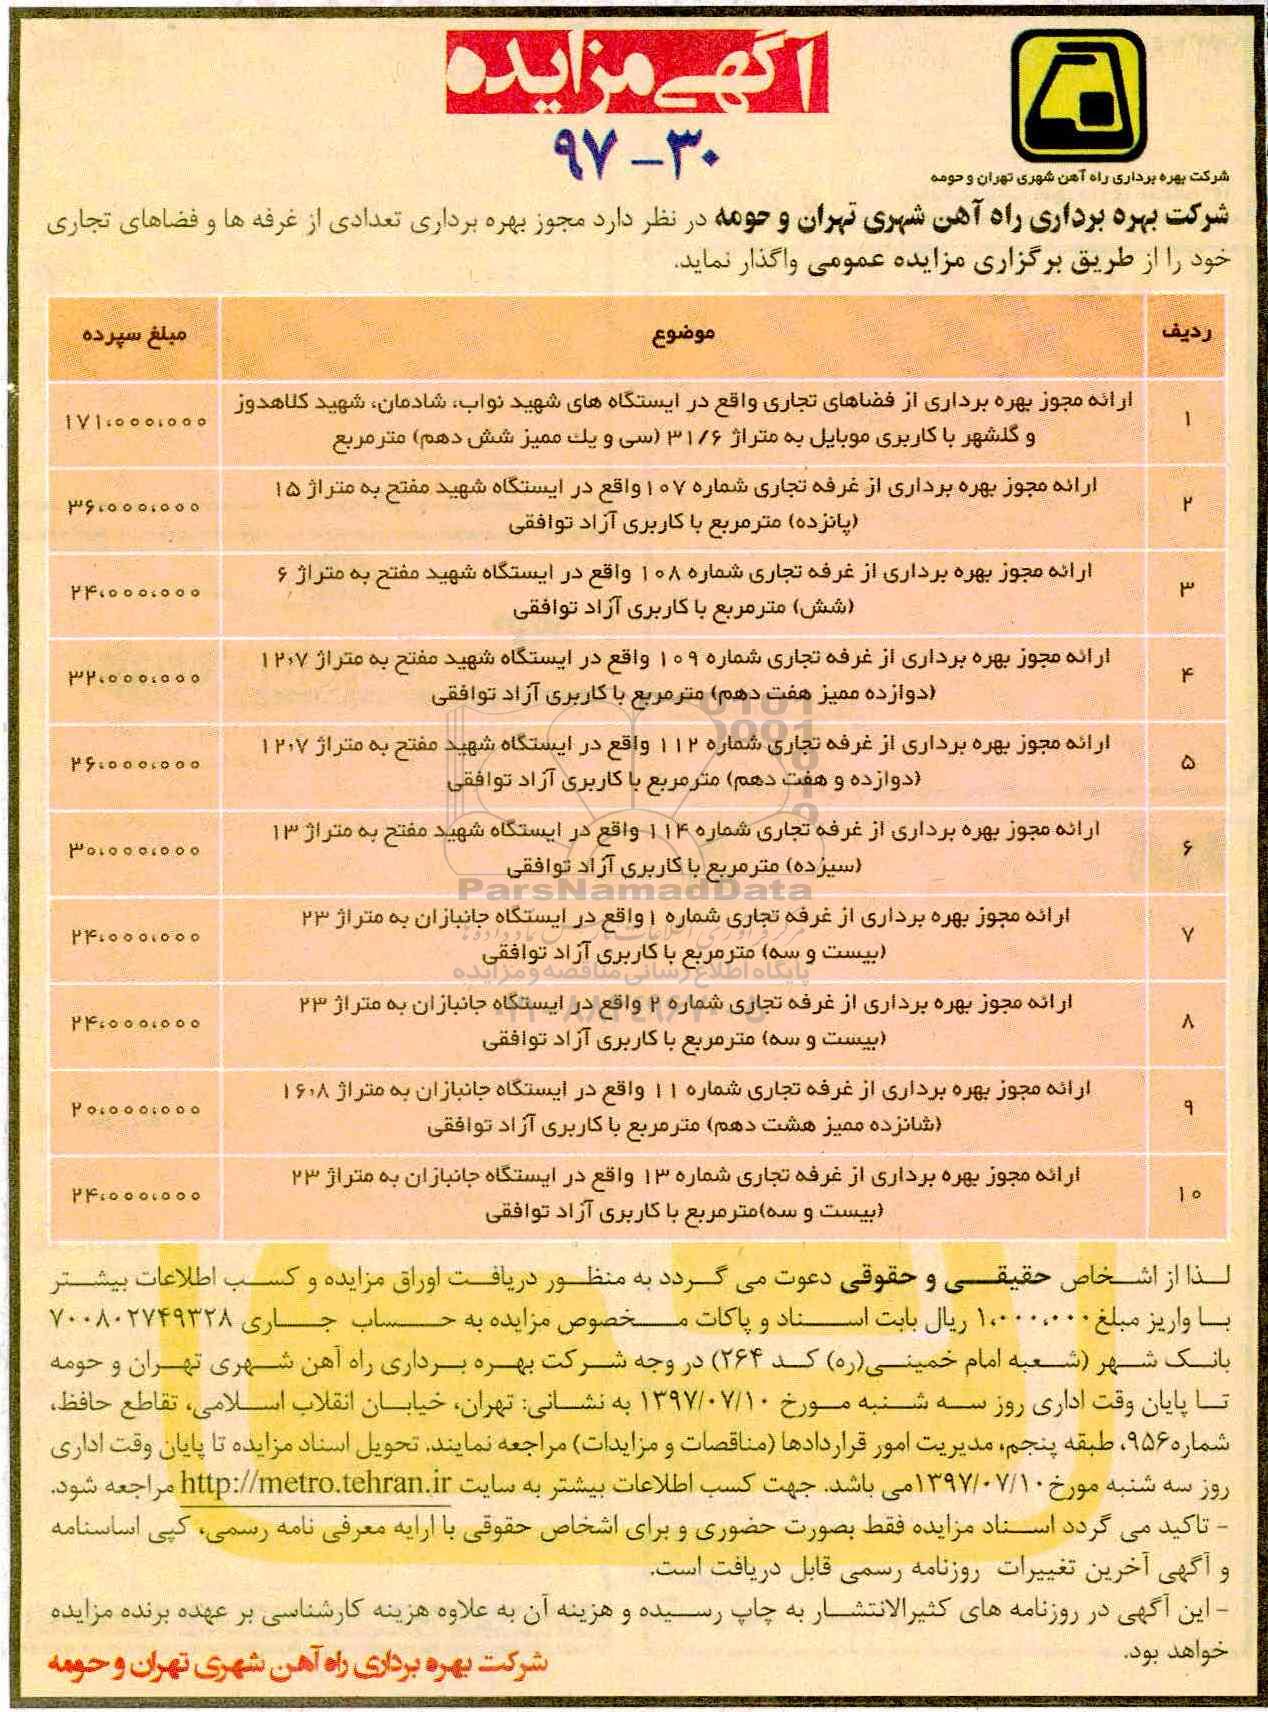 آگهی مزایده
۹۷-۳۰
شرکت بهره برداری راه آهن شهری تهران و حومه
شرکت بهره برداری راه آهن شهری تهران و حومه در نظر دارد مجوز بهره برداری تعدادی از غرفه ها و فضاهای تجاری
خود را از طریق برگزاری مزایده عمومی واگذار نماید.
ردیف موضوع مبلغ سپرده
۱ ارائه مجوز بهره برداری از فضاهای تجاری واقع در ایستگاه های شهید نواب، شادمان، شهید کلاهدوز
و گلشهر با کاربری موبایل به متراژ ۳۱/۶ (سی و یك ممیز شش دهم) مترمربع ۱۷۱،۰۰۰،۰۰۰
۲ ارائه مجوز بهره برداری از غرفه تجاری شماره ۱۰۷ واقع در ایستگاه شهید مفتح به متراژ ۱۵
(پانزده) مترمربع با کاربری آزاد توافقی ۳۶،۰۰۰،۰۰۰
۳ ارائه مجوز بهره برداری از غرفه تجاری شماره ۱۰۸ واقع در ایستگاه شهید مفتح به متراژ ۶
(شش) مترمربع با کاربری آزاد توافقی ۲۴،۰۰۰،۰۰۰
۴ ارائه مجوز بهره برداری از غرفه تجاری شماره ۱۰۹ واقع در ایستگاه شهید مفتح به متراژ ۱۲،۷
(دوازده ممیز هفت دهم) مترمربع با کاربری آزاد توافقی ۳۲،۰۰۰،۰۰۰
۵ ارائه مجوز بهره برداری از غرفه تجاری شماره ۱۱۲ واقع در ایستگاه شهید مفتح به متراژ ۱۲،۷
(دوازده و هفت دهم) مترمربع با کاربری آزاد توافقی ۲۶،۰۰۰،۰۰۰
۶ ارائه مجوز بهره برداری از غرفه تجاری شماره ۱۱۴ واقع در ایستگاه شهید مفتح به متراژ ۱۳
(سیزده) مترمربع با کاربری آزاد توافقی ۳۰،۰۰۰،۰۰۰
ParsNamadData
۷ ارائه مجوز بهره برداری از غرفه تجاری شماره ۱ واقع در ایستگاه جانبازان به متراژ ۲۳
(بیست و سه) مترمربع با کاربری آزاد توافقی ۲۴،۰۰۰،۰۰۰
پایگاه اطلاع رسانی مناقصه و مزایده
۸ ارائه مجوز بهره برداری از غرفه تجاری شماره ۲ واقع در ایستگاه جانبازان به متراژ ۲۳
(بیست و سه) مترمربع با کاربری آزاد توافقی ۲۴،۰۰۰،۰۰۰
۹ ارائه مجوز بهره برداری از غرفه تجاری شماره ۱۱ واقع در ایستگاه جانبازان به متراژ ۱۶،۸
(شانزده ممیز هشت دهم) مترمربع با کاربری آزاد توافقی ۲۰،۰۰۰،۰۰۰
۱۰ ارائه مجوز بهره برداری از غرفه تجاری شماره ۱۳ واقع در ایستگاه جانبازان به متراژ ۲۳
(بیست و سه)مترمربع با کاربری آزاد توافقی ۲۴،۰۰۰،۰۰۰
لذا از اشخاص حقیقی و حقوقی دعوت می گردد به منظور دریافت اوراق مزایده و کسب اطلاعات بیشتر
با واریز مبلغ ۱،۰۰۰،۰۰۰ ریال بابت اسناد و پاکات مخصوص مزایده به حساب جاری ۷۰۰۸۰۲۷۴۹۳۲۸
بانک شهر (شعبه امام خمینی(ره) کد ۲۶۴) در وجه شرکت بهره برداری راه آهن شهری تهران و حومه
تا پایان وقت اداری روز سه شنبه مورخ ۱۳۹۷/۰۷/۱۰ به نشانی: تهران، خیابان انقلاب اسلامی، تقاطع حافظ،
شماره ۹۵۶، طبقه پنجم، مدیریت امور قراردادها (مناقصات و مزایدات) مراجعه نمایند. تحویل اسناد مزایده تا پایان وقت اداری
روز سه شنبه مورخ ۱۳۹۷/۰۷/۱۰می باشد. جهت کسب اطلاعات بیشتر به سایت http://metro.tehran.ir مراجعه شود.
- تاکید می گردد اسناد مزایده فقط بصورت حضوری و برای اشخاص حقوقی با ارایه معرفی نامه رسمی، کپی اساسنامه
و آگهی آخرین تغییرات روزنامه رسمی قابل دریافت است.
- این آگهی در روزنامه های کثیرالانتشار به چاپ رسیده و هزینه آن به علاوه هزینه کارشناسی بر عهده برنده مزایده
خواهد بود.
شرکت بهره برداری راه آهن شهری تهران و حومه